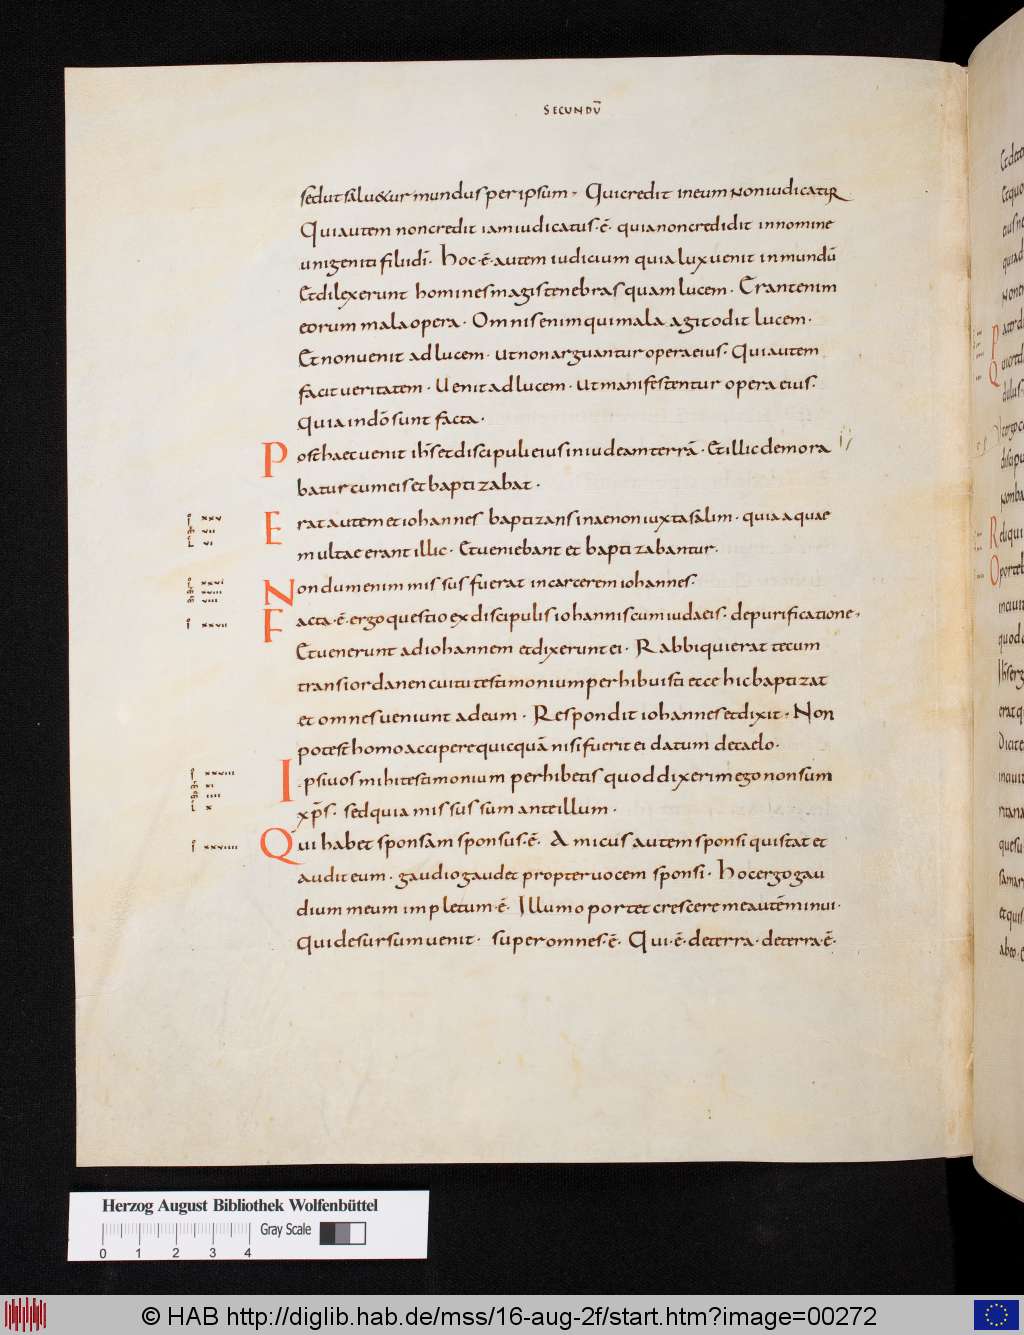 SECUNDŪ
sed ut salu&ur mundus per ipsum · Qui credit in eum non iudicatur
Qui autem non credit iam iudicatus · ē · quia non credidit in nomine
unigeniti filii dī · Hoc · ē · autem iudicium quia lux uenit in mundū
Et dilexerunt homines magis tenebras quam lucem · Erant enim
eorum mala opera · Omnis enim qui mala agit odit lucem ·
Et non uenit ad lucem · ut non arguantur opera eius · Qui autem
facit ueritatem · Uenit ad lucem · ut manifestentur opera eius ·
quia in dō sunt facta ·
Post haec uenit ihs et discipuli eius in iudeam terrā · Et illic demora
batur cum eis et baptizabat ·
Erat autem et iohannes baptizans in aenon iuxta salim · quia aquae
multae erant illic · Et ueniebant et baptizabantur ·
Nondum enim missus fuerat in carcerem iohannes ·
Facta · ē · ergo questio ex discipulis iohannis cum iudaeis · de purificatione ·
Et uenerunt ad iohannem et dixerunt ei · Rabbi qui erat tecum
trans iordanen cui tu testimonium perhibuisti ecce hic baptizat
et omnes ueniunt ad eum · Respondit iohannes et dixit · Non
potest homo accipere quicquā nisi fuerit ei datum de caelo ·
Ipsi uos mihi testimonium perhibetis quod dixerim ego non sum
xps · sed quia missus sum ante illum ·
Qui habet sponsam sponsus · ē · Amicus autem sponsi qui stat et
audit eum · gaudio gaudet propter uocem sponsi · Hoc ergo gau
dium meum impletum · ē · Illum oportet crescere me autē minui ·
Qui desursum uenit · super omnes · ē · Qui · ē · de terra · de terra · ē ·
xxv
vii
vi
xxvi
xviii
viii
xxvii
xxviii
xi
iiii
x
xxviiii
Herzog August Bibliothek Wolfenbüttel
Gray Scale
0 1 2 3 4
© HAB http://diglib.hab.de/mss/16-aug-2f/start.htm?image=00272